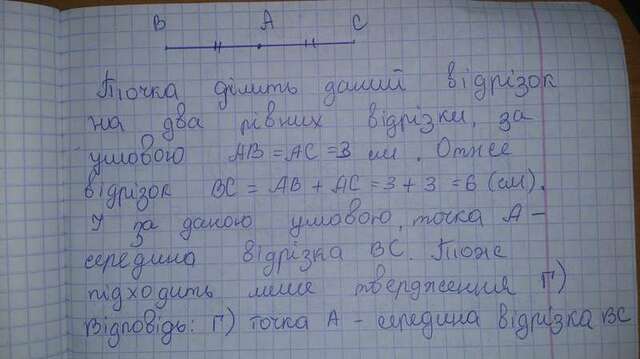 В А С
Точка ділить даний відрізок
на два рівних відрізки, за
умовою АВ = АС = 3 см. Отже
відрізок ВС = АВ + АС = 3 + 3 = 6 (см).
І за даною умовою, точка А –
середина відрізка ВС. Тоже
підходить лише твердження Г)
Відповідь: Г) точка А – середина відрізка ВС